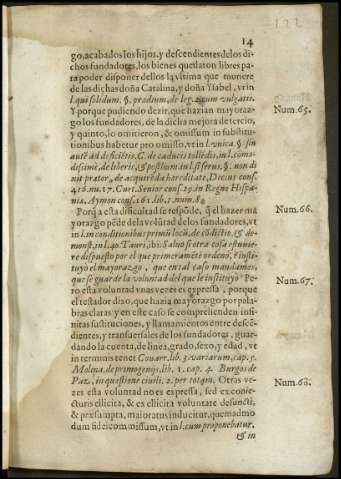 14
go, acabados los hijos, y descendientes de los di-
chos fundadores, los bienes quedaron libres pa-
ra poder disponer dellos la vltima que muriere
de las dichas doña Catalina, y doña Ysabel, vt in
l. qui solidum. §. prædium, de leg. vulgatis.
Y porque pudiendo dezir, que hazian mayoraz-
go los fundadores, de la dicha mejora de tercio,
y quinto, lo omitieron, & omissum in substitu-
tionibus habetur pro omisso, vt in l. vnica. §. sin
autē ad deficiētis. C. de caducis tollēdis, in l. commo-
dissimè, de liberis, & posthum. in l. si seruus. §. non di-
xit prætor, de acquirēda hæreditate, Decius cons.
416. nu. 17. Curt. Senior cons. 29. in Regno Hispa-
niæ, Aymon cons. 161. lib. 1. num. 8.
Num. 65.
Porq̄ a esta dificultad se respōde, q̄ el hazer ma
yorazgo pēde de la volūtad de los fundadores, vt
in l. in conditionibus primū locū, de cōditio. & de-
monst. in l. 40. Tauri, ibi: Saluo si otra cosa estuuie-
re dispuesto por el que primeramēte ordenò, è insti-
tuyò el mayorazgo, que en tal caso mandamos,
que se guarde la voluntad del que le instituyò: Pe-
ro esta voluntad vnas vezes es expressa, porque
el testador dixo, que hazia mayorazgo por pala-
bras claras y en este caso se comprehenden infi-
nitas sustituciones, y llamamientos entre descē-
dientes, y transuersales de los fundadores, guar-
dando la cuenta, de linea, grado, sexo, y edad, vt
in terminis tenet Couarr. lib. 3. variarum, cap. 5.
Molina, de primogenijs, lib. 1. cap. 4. Burgos de
Paz, in quæstione ciuili. 2. per totam. Otras ve-
zes esta voluntad no es expressa, sed ex conie-
cturis ellicita, & ex ellicita voluntate defuncti,
& præsumpta, maioratus inducitur, quemadmo
dum fideicommissum, vt in l. cum proponebatur,
& in
Num. 66.
Num. 67.
Num. 68.